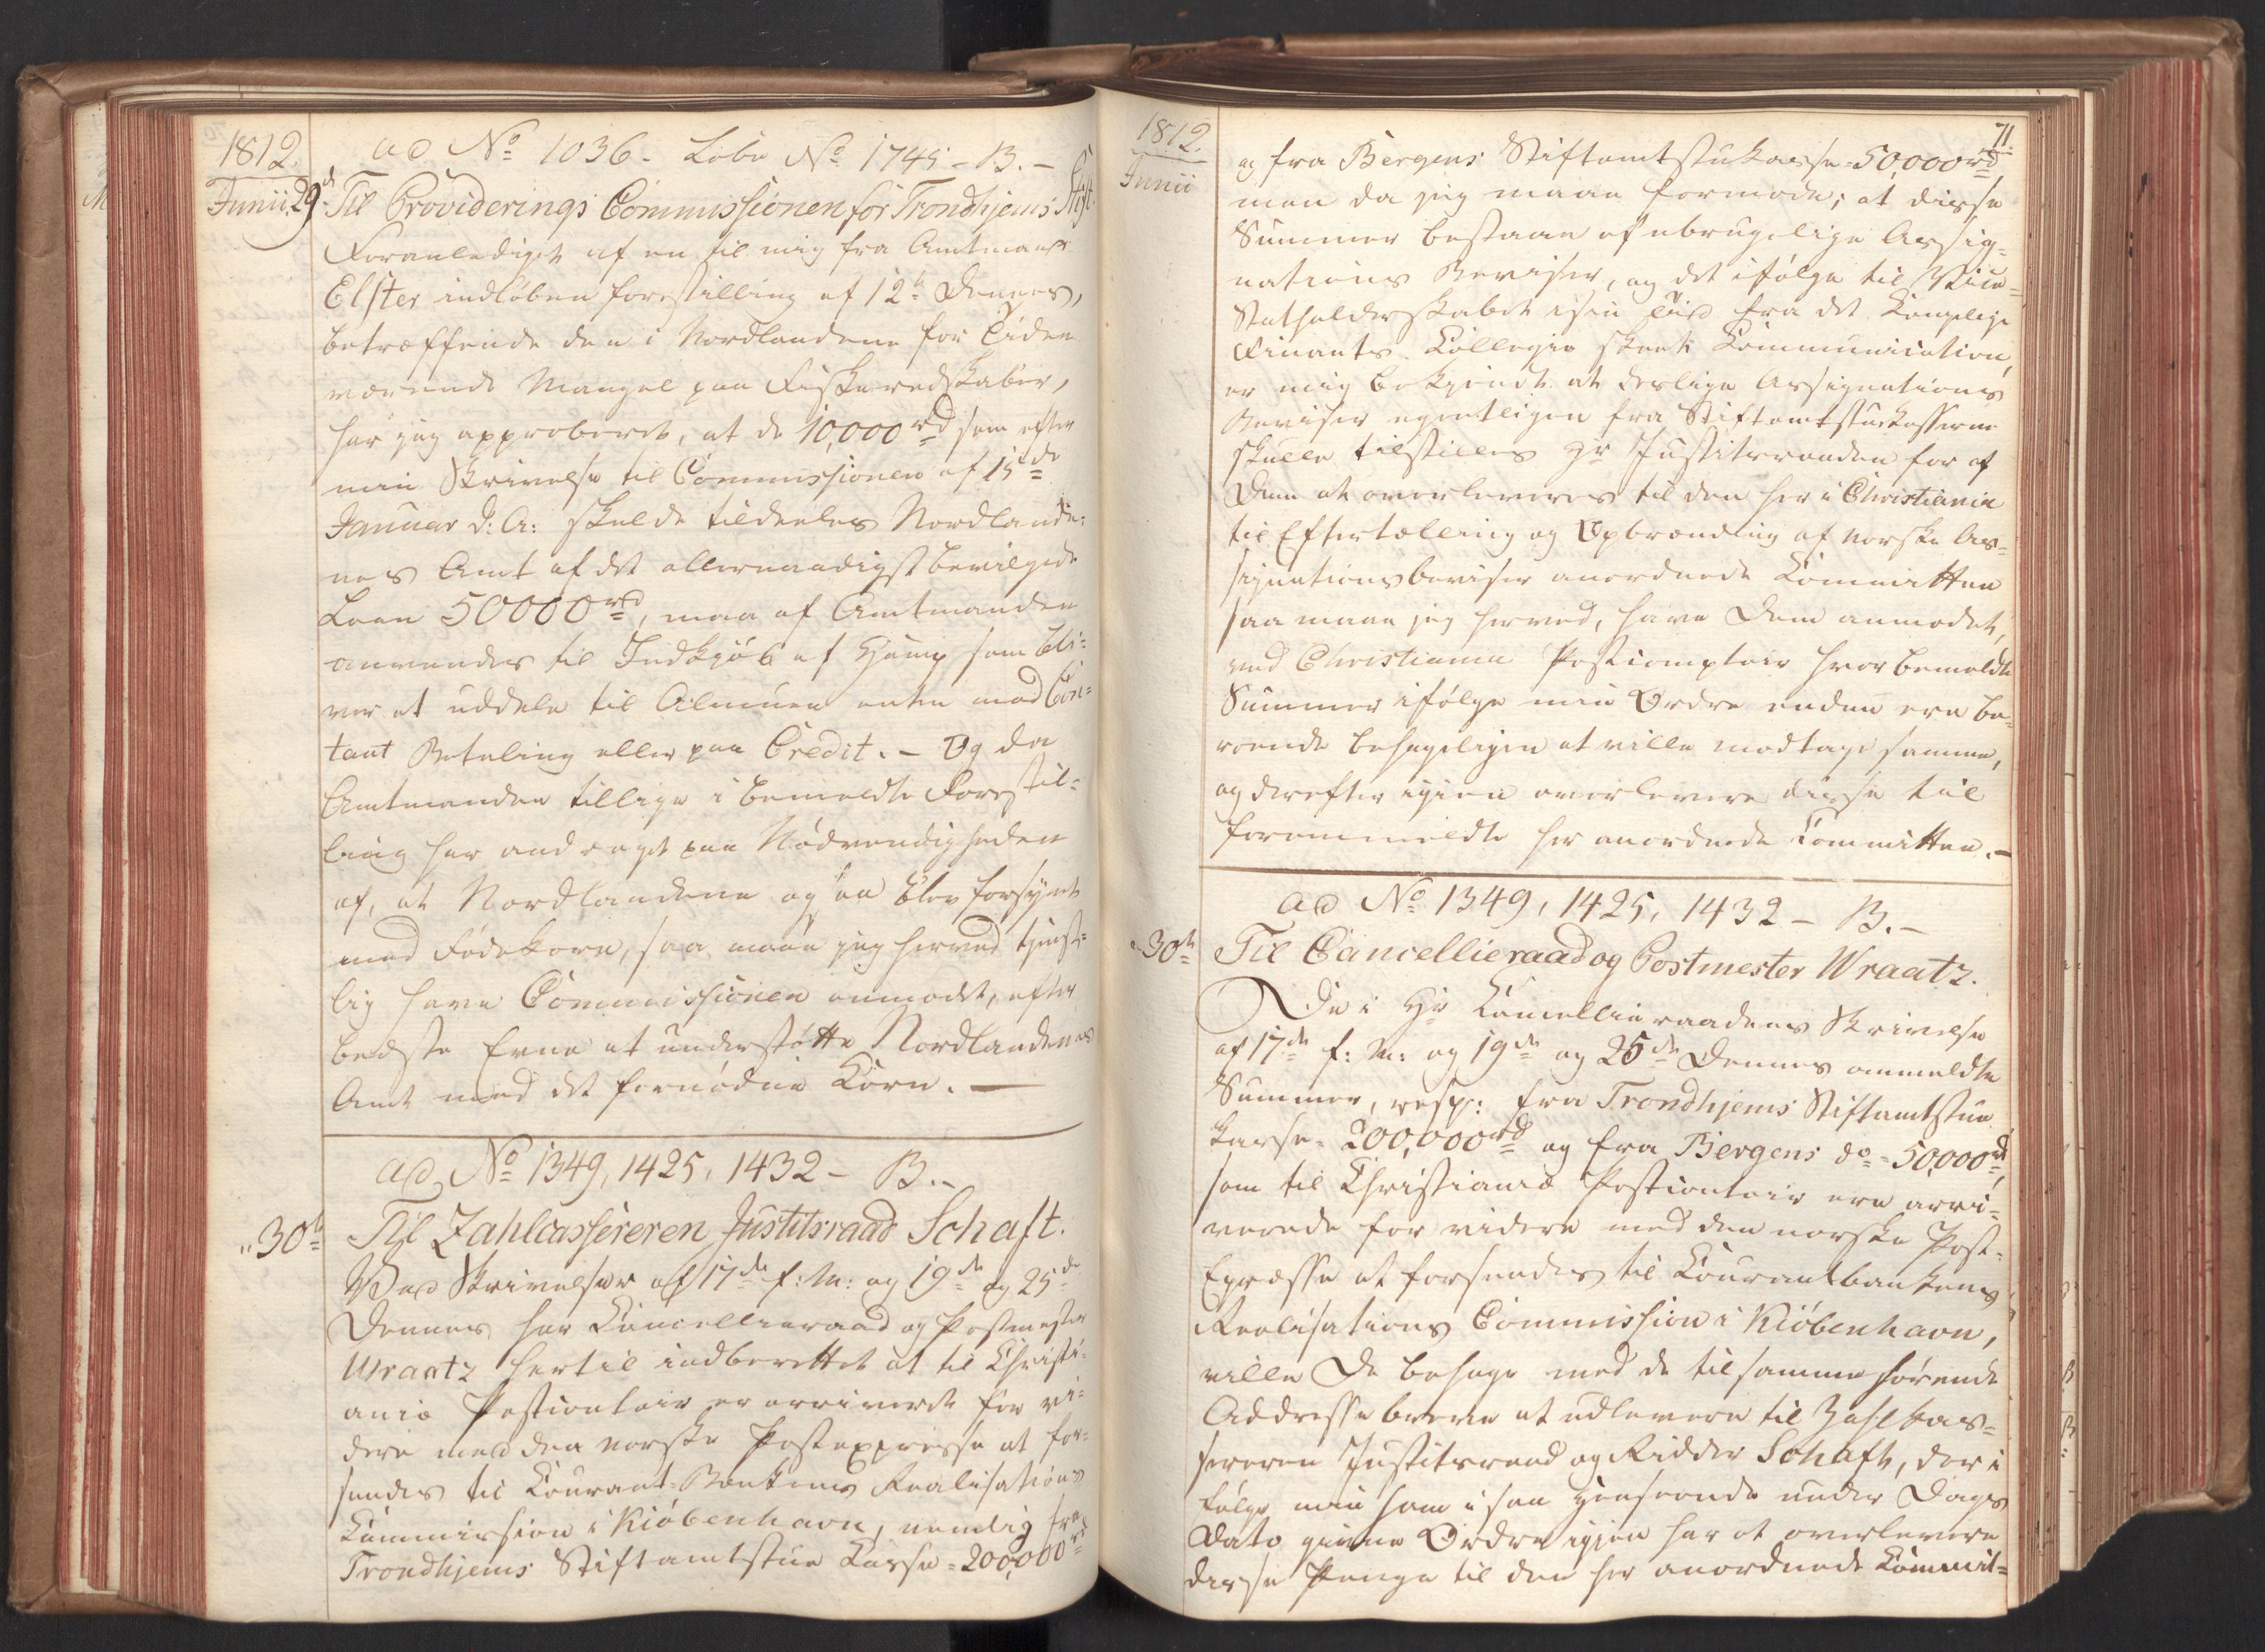 1812.
Junii 29d
ad No 1036 - Løbe No 1745 - B. -
Til Providerings Commissionen for Trondhjems Stift.
Foranlediget af en til mig fra Amtmand
Elster indløben forestilling af 12te Dennes,
betræffende den i Nordlandene for Tiden
værende Mangel paa Fiskeredskaber,
har jeg approberet, at de 10,000 rd som efter
min Skrivelse til Commissionen af 15de
Januar d: A: skulde tildeeles Nordlande-
nes Amt af det allernaadigst bevilgede
Laan 50000 rd, maa af Amtmanden
anvendes til Indkjøb af Hamp som bli-
ver at uddele til Almuen enten mod Con-
tant Betaling eller paa Credit. - Og da
Amtmanden tillige i bemeldte Forestil-
ling har andraget paa Nødvendigheden
af, at Nordlandene og saa blev forsynet
med Fødekorn, saa maae jeg herved tjenst-
lig have Commissionen anmodet, efter
bedste Evne at understøtte Nordlandenes
Amt med det fornødne Korn. -
ad No 1349, 1425, 1432 - B. -
" 30te
Til Zahlcassereren Justitsraad Schaft.
Ved Skrivelser af 17de f: M: og 19de og 25de
Dennes har Cancellieraad og Postmester
Wraatz hertil indberettet at til Christi-
aniæ Postcontoir er arriveret for vi-
dere med den norske Postexpresse at for-
sendes til Courant-Bankens Realisations
Commission i Kiöbenhavn, nemlig fra
Trondhjems Stiftamtstue Casse = 200,000 rd
71.
1812.
Junii
og fra Bergens Stiftamtstukasse = 50,000 rd
men da jeg maae formode; at disse
Summer bestaae af ubrugelige Assig-
nations Beviser, og det ifølge til Vice-
Statholderskabet i sin Tiid fra det Kongelige
Finants Collegio skeet Communication,
er mig bekjendt at deslige Assignations
Beviser egentligen fra Stiftamtstuekasserne
skulle tilstilles Hr Justitsraaden for af
Dem at overleveres til den her i Christiania
til Eftertælling og Opbrænding af norske As-
signationsbeviser anordnede Committee
saa maae jeg herved, have Dem anmodet,
ved Christiania Postcomptoir hvor bemeldte
Summer ifølge min Ordre endnu ere be-
roende behageligen at ville modtage samme,
og derefter igien overlevere disse til
forommeldte her anordnede Committee. -
ad No 1349, 1425, 1432 - B. -
" 30te
Til Cancellieraad og Postmester Wraatz.
De i Hr Cancellieraadens Skrivelse
af 17de f: M: og 19de og 25de Dennes anmeldte
Summer, resp: fra Trondhjems Stiftamtstue
Kasse = 200,000 rd og fra Bergens do = 50,000 rd,
som til Christianiæ Postcontoir ere arri-
verede for videre med den norske Post-
Expresse at forsendes til Courantbankens
Realisations Commission i Kiöbenhavn,
ville De behage med de til samme hørende
Addresse breve at udlevere til Zahlkas-
sereren Justitsraad og Ridder Schaft, der i
følge min ham i saa Henseende under Dags
Dato givne Ordre igjen har at overlevere
disse Penge til den her anordnede Commit-